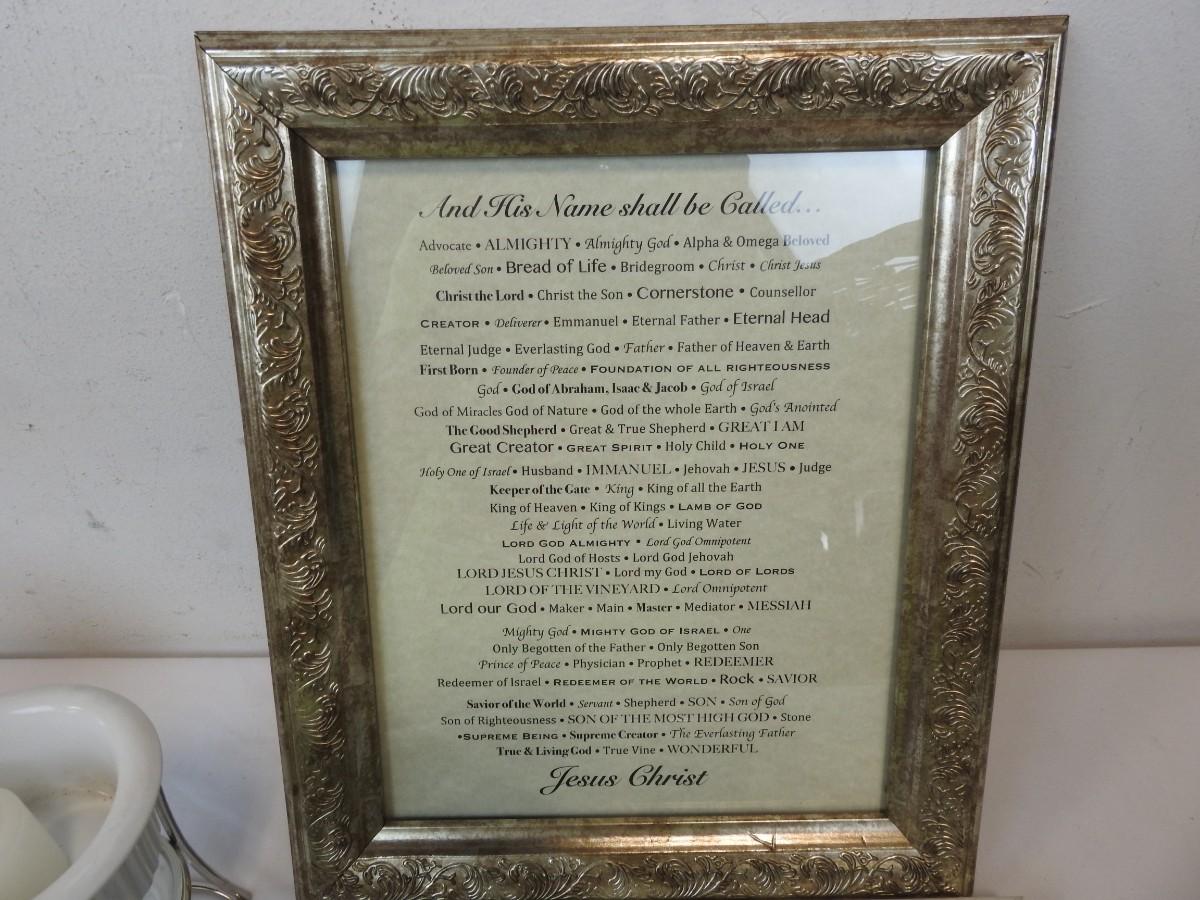 And His Name shall be Called...
Advocate • ALMIGHTY • Almighty God • Alpha & Omega Beloved
Beloved Son • Bread of Life • Bridegroom • Christ • Christ Jesus
Christ the Lord • Christ the Son • Cornerstone • Counsellor
CREATOR • Deliverer • Emmanuel • Eternal Father • Eternal Head
Eternal Judge • Everlasting God • Father • Father of Heaven & Earth
First Born • Founder of Peace • FOUNDATION OF ALL RIGHTEOUSNESS
God • God of Abraham, Isaac & Jacob • God of Israel
God of Miracles God of Nature • God of the whole Earth • God's Anointed
The Good Shepherd • Great & True Shepherd • GREAT I AM
Great Creator • GREAT SPIRIT • Holy Child • HOLY ONE
Holy One of Israel • Husband • IMMANUEL • Jehovah • JESUS • Judge
Keeper of the Gate • King • King of all the Earth
King of Heaven • King of Kings • LAMB OF GOD
Life & Light of the World • Living Water
LORD GOD ALMIGHTY • Lord God Omnipotent
Lord God of Hosts • Lord God Jehovah
LORD JESUS CHRIST • Lord my God • LORD OF LORDS
LORD OF THE VINEYARD • Lord Omnipotent
Lord our God • Maker • Main • Master • Mediator • MESSIAH
Mighty God • MIGHTY GOD OF ISRAEL • One
Only Begotten of the Father • Only Begotten Son
Prince of Peace • Physician • Prophet • REDEEMER
Redeemer of Israel • REDEEMER OF THE WORLD • Rock • SAVIOR
Savior of the World • Servant • Shepherd • SON • Son of God
Son of Righteousness • SON OF THE MOST HIGH GOD • Stone
•SUPREME BEING • Supreme Creator • The Everlasting Father
True & Living God • True Vine • WONDERFUL
Jesus Christ